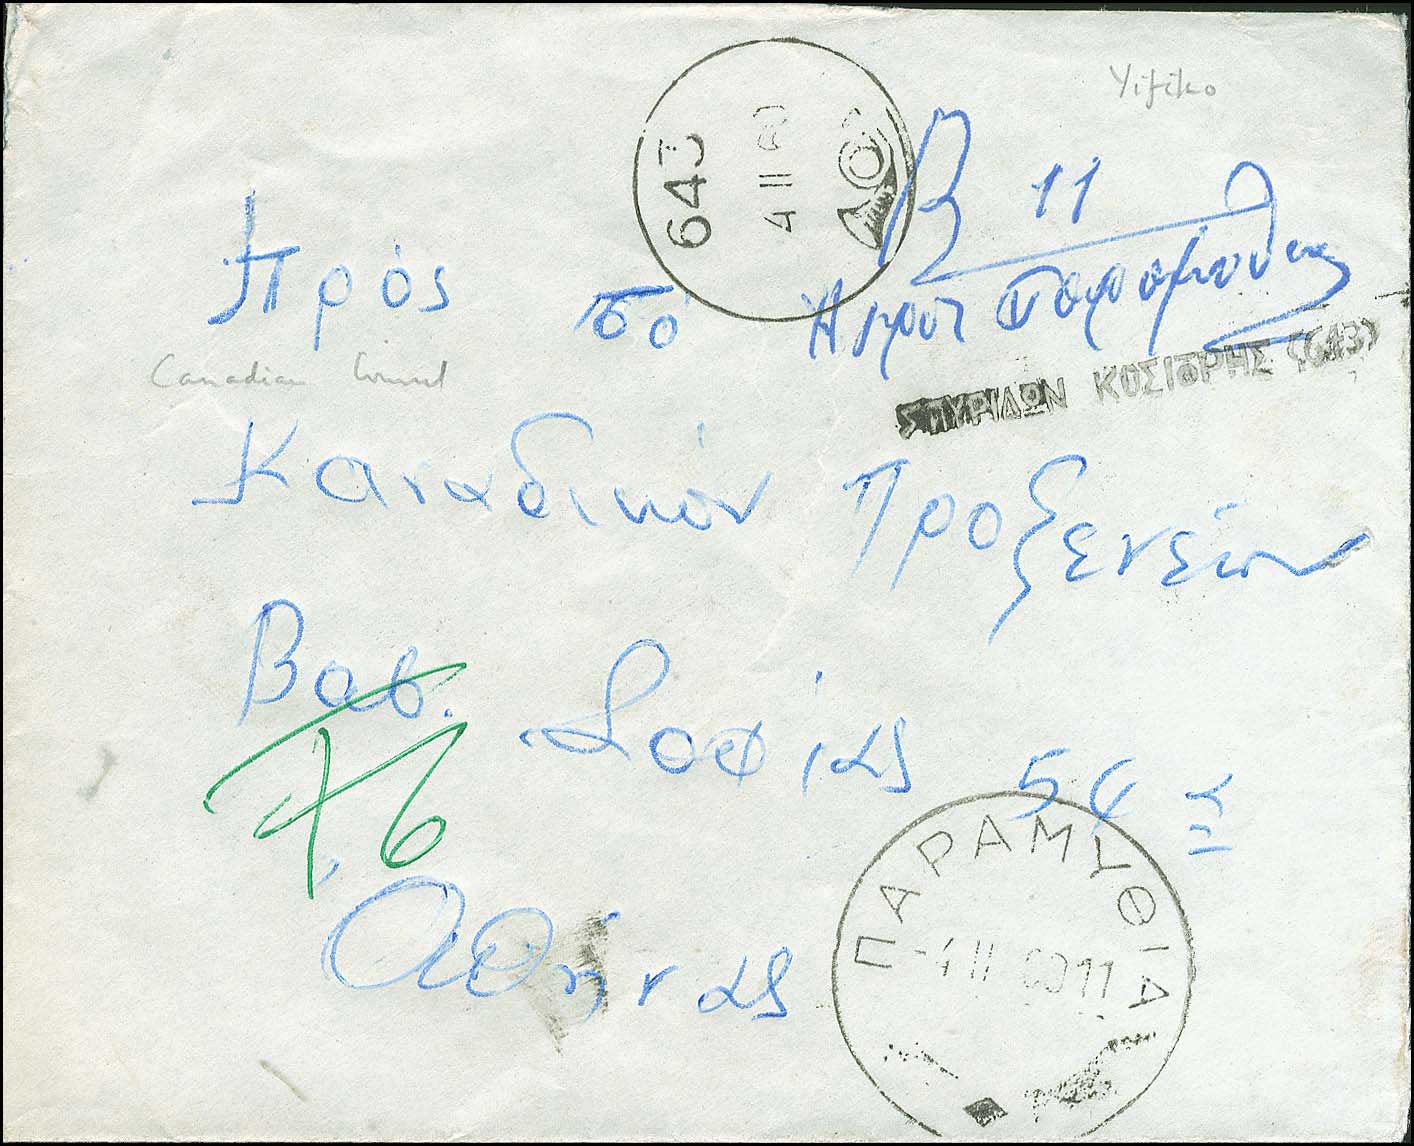 Yifiko
643
4 II 60
Β 11
Ἀγροτ Παραμυθίας
Πρός τό
ΣΠΥΡΙΔΩΝ ΚΟΣΙΦΡΗΣ (643)
Canadian Consul
Καναδικόν Προξενείον
Βασ. Σοφίας 54 α
76
Αθήνας
ΠΑΡΑΜΥΘΙΑ
-4 II 60 11